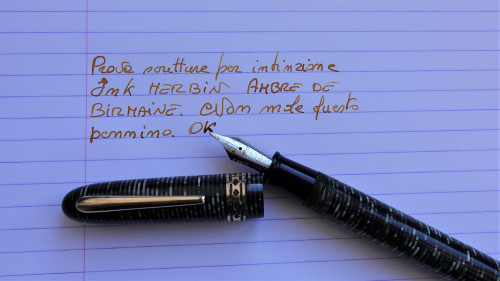 Prova scrittura per intinzione
Ink HERBIN AMBRE DE
BIRMAINE. Non male questo
pennino. OK